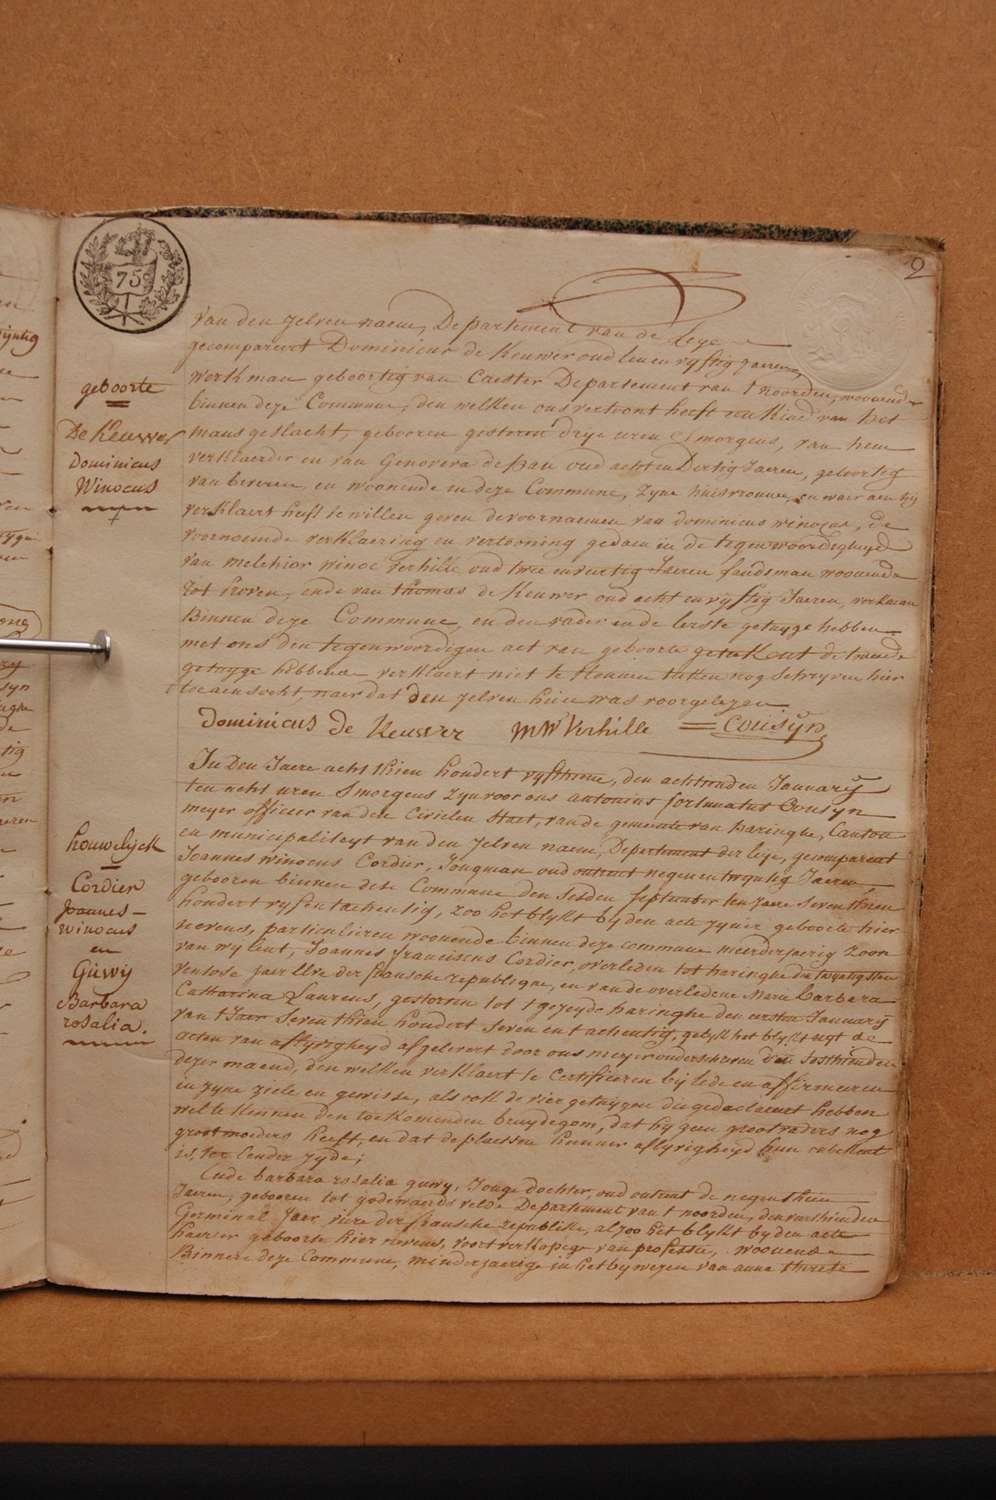 2
75c
van den zelven naem, Departement van de Leye
gecompareert Dominicus de Keuwer oud len en vyftig Jaeren,
geboorte
werkman geboortig van Caester Departement van t noorden, woonende
binnen deze Commune, den welken ons vertoont heeft een kind van het
De Keuwer
Dominicus
Winocus
mans geslacht, gebooren gesteren drije uren s'morgens, van hem
verklaerder en van Genoveva de pau oud acht en Dertig Jaeren, geboortig
van beveren, en woonende in deze Commune, zyne huisvrouwe, en waer aen hij
verklaert heeft te willen geven de voornaemen van dominicus winocus, de
voornoemde verklaering en vertooning gedaen in de tegenwoordigheyd
van melchior winoc verhille oud twee en veertig Jaeren landsman woonende
tot hoven, ende van thomas de Keuwer oud acht en vyftig Jaeren, werkman
Binnen deze Commune, en den vader en de eerste getuyge hebben
met ons den tegenwoordigen act van geboorte geteekent de tweede
getuyge hebbende verklaert niet te konnen teeken nog schryven hier
toe aensocht, naer dat den zelven hun was voorgelezen
Dominicus De Keuwer MW Verhille = Cousÿn
In Den Jaere acht thien hondert vyfthiene, den achtienden Januarÿ
ten acht uren s morgens zyn voor ons antonius fortunatus Cousyn
meyer officier van den Civielen Staet, van de gemeente van haringhe, Canton
houwelijck
en municipaliteyt van den zelven naem, Departement der leije, gecompareert
Cordier
Joannes
winocus
en
Güwÿ
Barbara
rosalia.
Joannes winocus Cordier, Jongman oud ontrent negen en twyntig Jaeren
gebooren binnen deze Commune den sesden september ten jaere seventhien
hondert vyf en tachentig, zoo het blykt by den acte zyner geboorte hier
nevens, particulieren woonende binnen deze commune meerderjaerig zoon
van wylent, Joannis franciscus Cordier, overleden tot haringhe den twyntigsten
ventose jaer der fransche republique, en van de overledene Marie barbara
Catharina Laurens, gestorven tot t gezeyde haringhe den eersten Januarÿ
van t Jaer seventhien hondert seven en tachentig, gelyk het blykt uyt de
acten van aflyvigheyd afgelevert door ons meyer onderschreven den sesthienden
dezer maend, den welken verklaert te Certifieren bij eede en affirmeren
in zyne ziele en gewisse, als ook de vier getuygen die gedeclareert hebben
wel te kennen den toekomenden bruydegom, dat hy geen grootvaders nog
grootmoeders heeft, en dat de plaetsen hunner aflyvigheyd hun onbekent
is, ter eender zyde;
Ende barbara rosalia guwy, Jonge dochter, oud ontrent de negenthien
Jaeren, gebooren tot godewaersvelde Departement van t noorden, den
Germinal Jaer vure der fransche republike, alzoo het blykt by den acte
haerer geboorte hier nevens, voortverkopege van professie, woonende
Binnen deze Commune, minderjaerige in het bywezen van anna therese